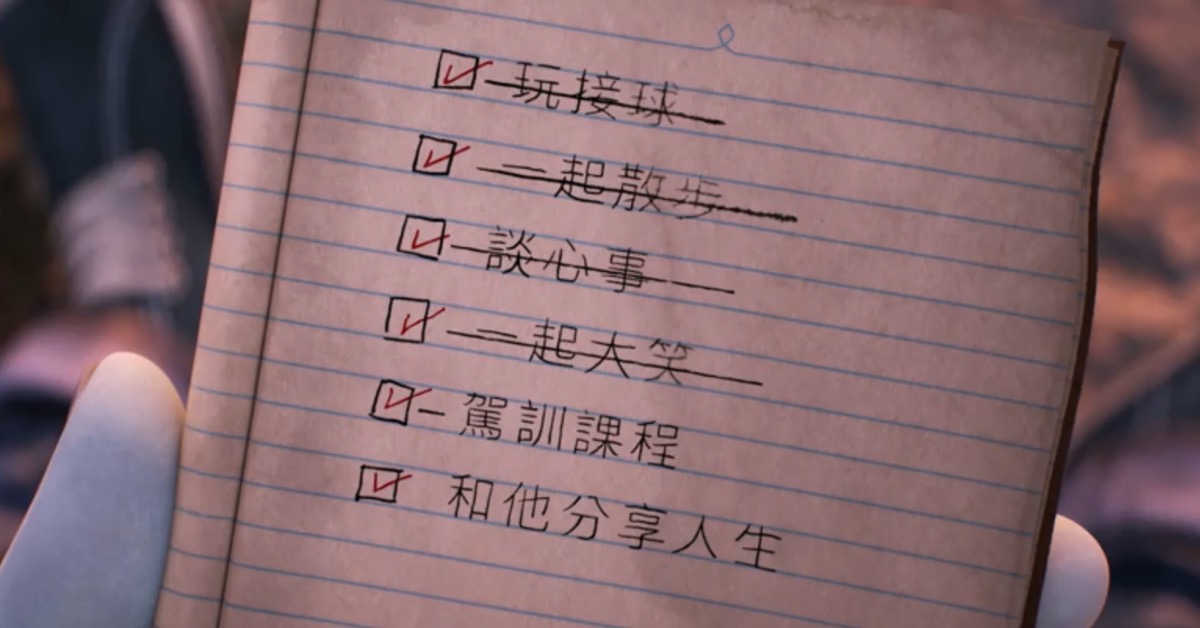 玩接球
一起散步
談心事
一起大笑
駕訓課程
和他分享人生